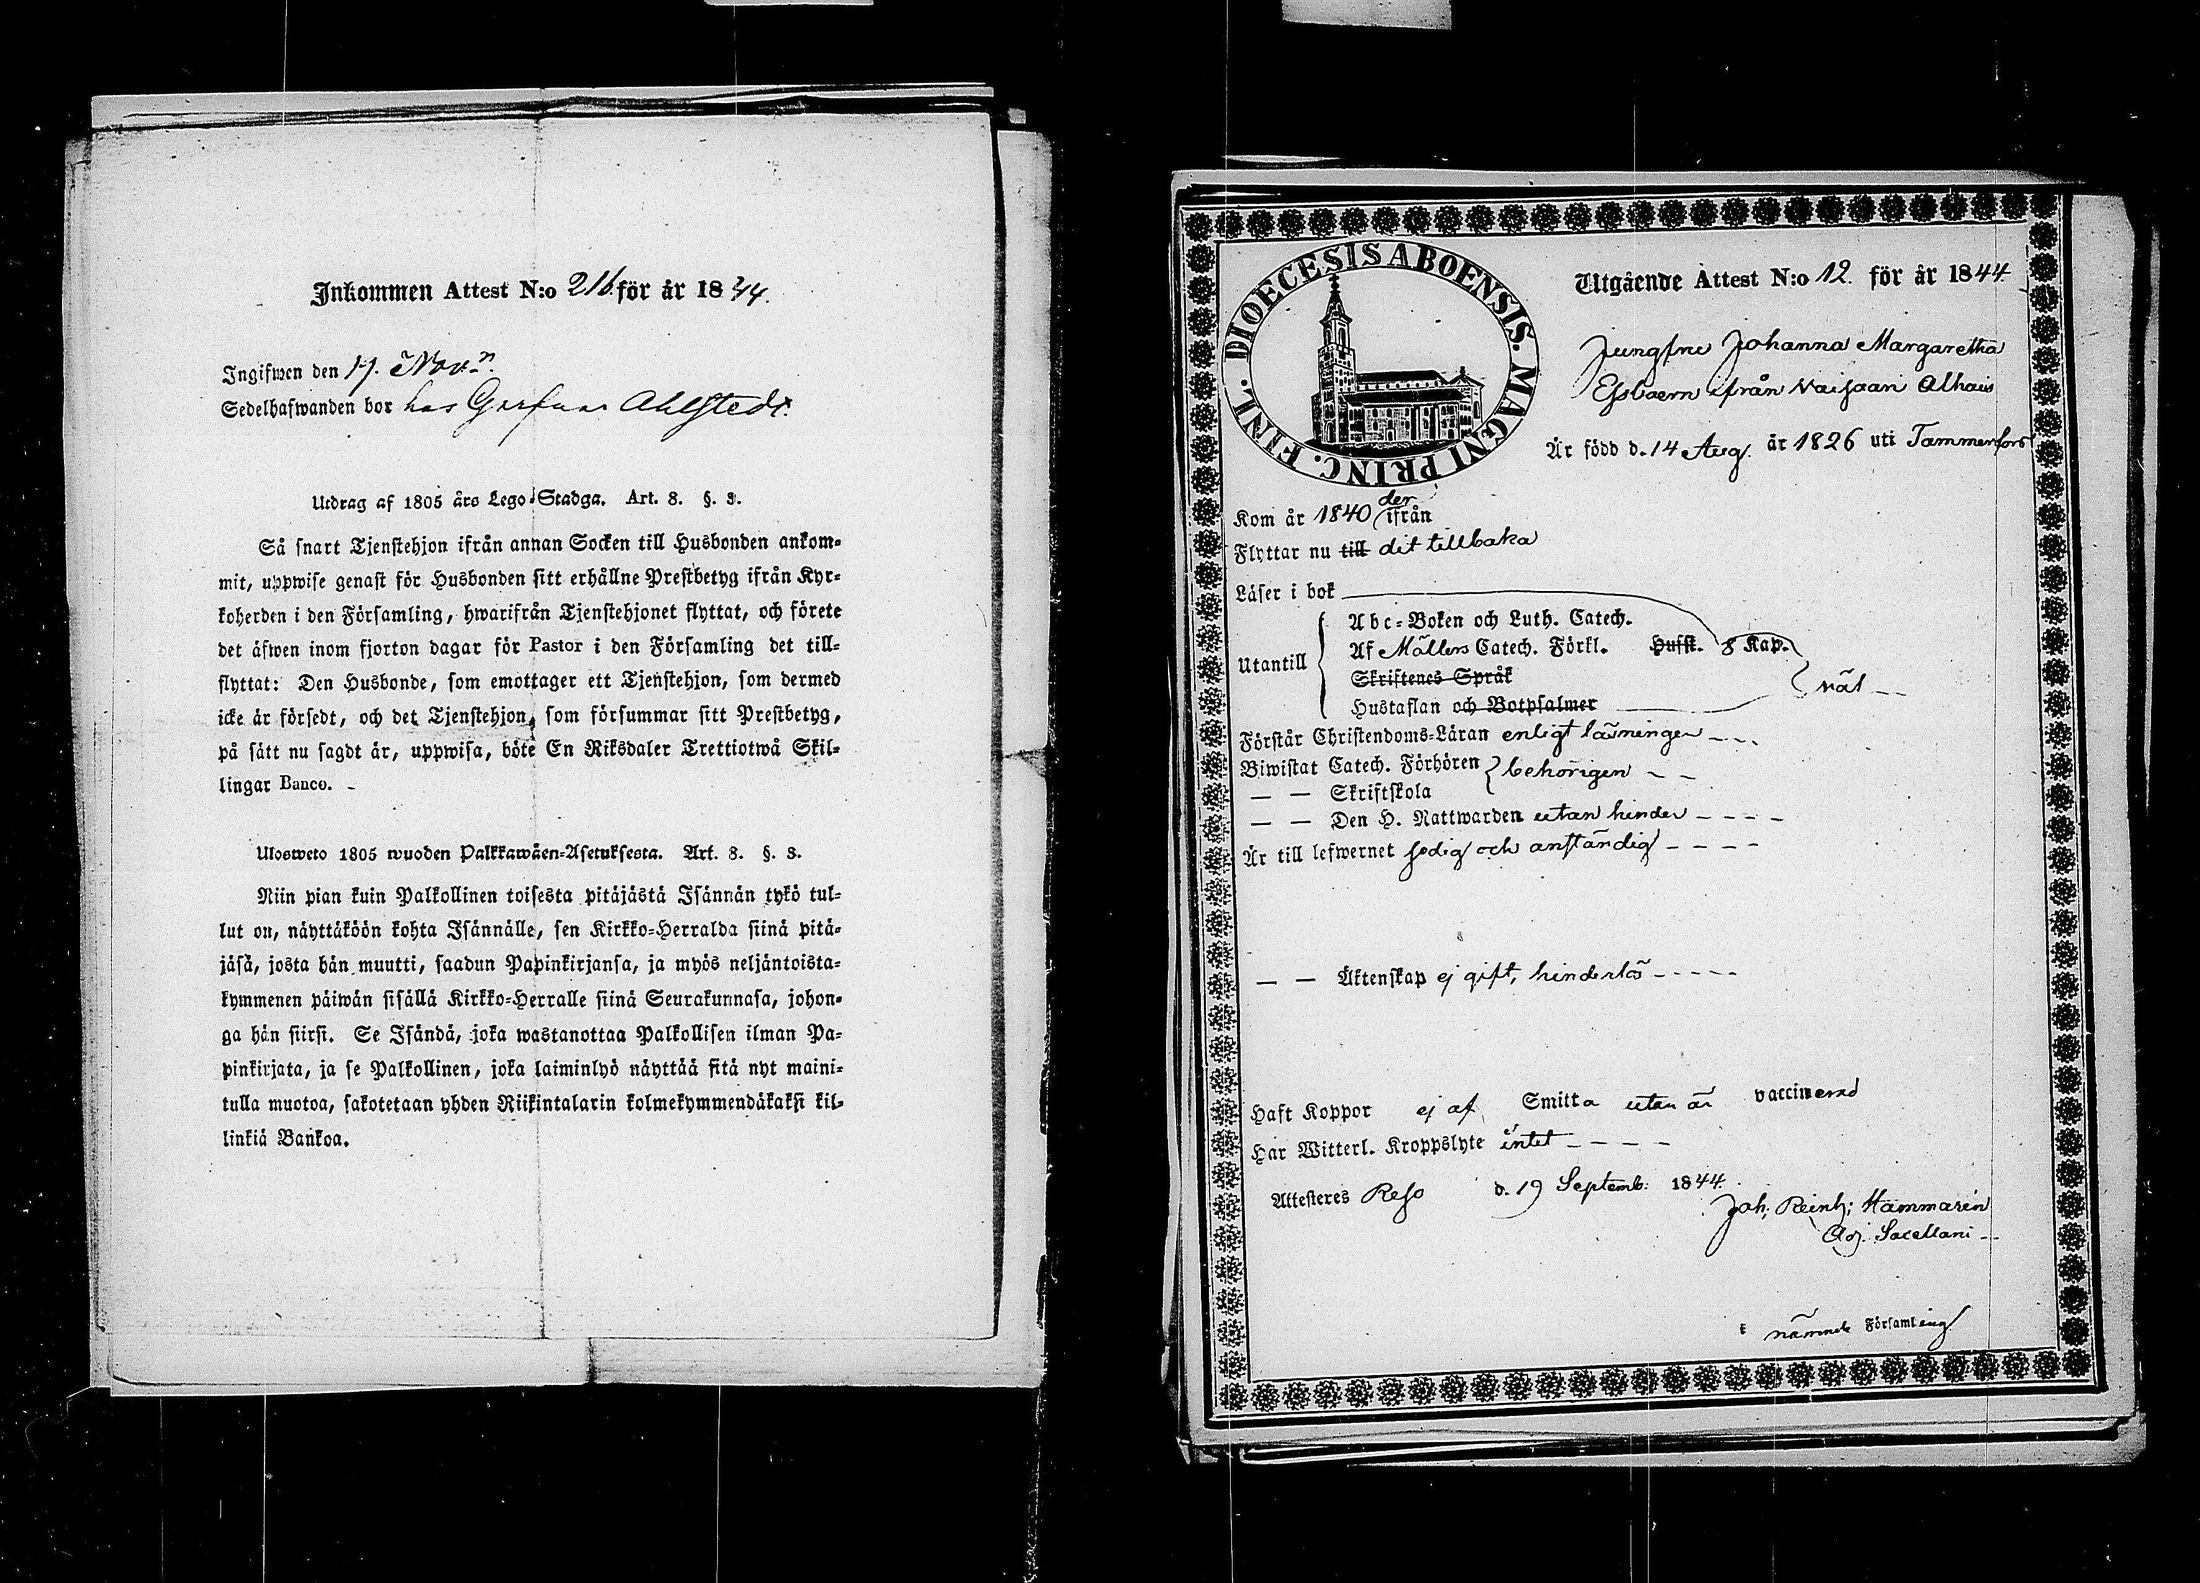 Inkommen Attest N:o 216 för år 1844.
Ingifwen den 17. Nov:
Sedelhafwanden bor hos Ahlstedt.
Utdrag af 1805 års Lego-Stadga. Art. 8. §. 3.
Så snart Tjenstehjon ifrån annan Socken till Husbonden ankom-
mit, uppwise genast för Husbonden sitt erhållne Prestbetyg ifrån Kyr-
koherden i den Församling, hwarifrån Tjenstehjonet flyttat, och förete
det äfwen inom fjorton dagar för Pastor i den Församling det till-
flyttat: Den Husbonde, som emottager ett Tjenstehjon, som dermed
icke är försedt, och det Tjenstehjon, som försummar sitt Prestbetyg,
på sätt nu sagdt är, uppwisa, böte En Riksdaler Trettiotwå Skil-
lingar Banco.
Ulosweto 1805 wuoden Palkkawäen-Asetuksesta. Art. 8. §. 3.
Niin pian kuin Palkollinen toisesta pitäjästä Isännän tykö tul-
lut on, näyttäköön kohta Isännälle, sen Kirkko-Herralda siinä pitä-
jäsä, josta hän muutti, saadun Papinkirjansa, ja myös neljäntoista-
kymmenen päiwän sisällä Kirkko-Herralle siinä Seurakunnasa, johon-
ga hän siirsi. Se Isändä, joka wastanottaa Palkollisen ilman Pa-
pinkirjata, ja se Palkollinen, joka laiminlyö näyttää sitä nyt maini-
tulla muotoa, sakotetaan yhden Riikintalarin kolmekymmendäkaksi kil-
linkiä Bankoa.
DIOECESIS ABOENSIS. MAGNI PRINC. FINL.
Utgående Attest N:o 12. för år 1844.
Jungfru Johanna Margaretha
Essboern ifrån Naisaari Alhais
Är född d. 14 Aug. år 1826 uti Tammerfors
Kom år 1840 der ifrån
Flyttar nu till dit tillbaka
Läser i bok
Utantill
Abc-Boken och Luth. Catech.
Af Möllers Catech. Förkl. Husst. 8 Kap.
Skriftenes Språk
Hustaflan och Botpsalmer
näl
Förstår Christendoms-Läran enligt läsningen
Biwistat Catech. Förhören behörigen
— — Skriftskola
— — Den H. Nattwarden utan hinder
Är till lefwernet sedig och anständig
— — Äktenskap ej gift, hinderlös
Haft Koppor ej af Smitta utan är vaccinerad
Har Witterl. Kroppslyte intet
Attesteres Reso d. 19 Septemb: 1844.
Joh: Reinh: Hammarén
Adj. Sacellani
i nämnde Församling